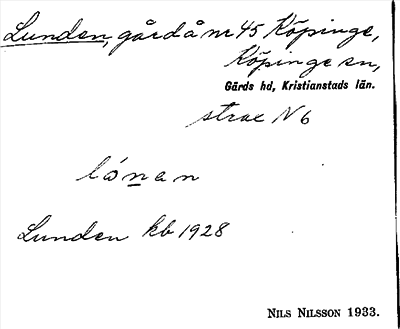 Lunden, gård å nr 45 Köpinge,
Köpinge sn,
Gärds hd, Kristianstads län.
strax N 6
lónan
Lunden kb 1928
NILS NILSSON 1933.